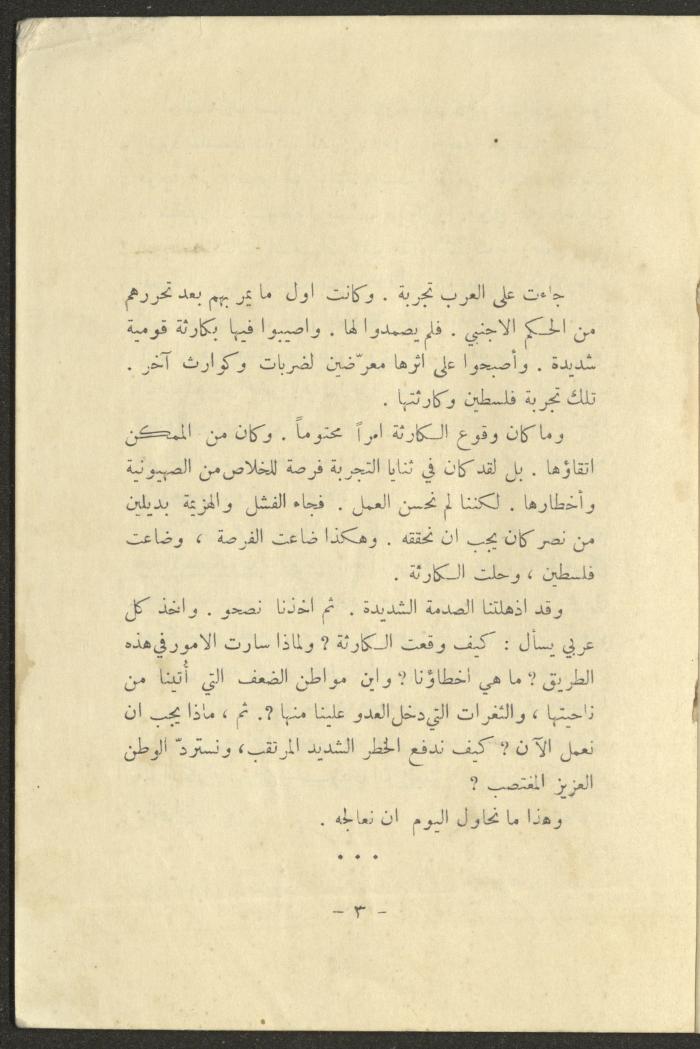 جاءت على العرب تجربة . وكانت اول ما يمر بهم بعد تحررهم
من الحكم الاجنبي . فلم يصمدوا لها . واصيبوا فيها بكارثة قومية
شديدة . وأصبحوا على اثرها معرّضين لضربات وكوارث آخر .
تلك تجربة فلسطين وكارثتها .
وما كان وقوع الكارثة امراً محتوماً . وكان من الممكن
اتقاؤها . بل لقد كان في ثنايا التجربة فرصة للخلاص من الصهيونية
وأخطارها . لكننا لم نحسن العمل . فجاء الفشل والهزيمة بديلين
من نصر كان يجب ان نحققه . وهكذا ضاعت الفرصة ، وضاعت
فلسطين ، وحلت الكارثة .
وقد اذهلتنا الصدمة الشديدة . ثم اخذنا نصحو . واخذ كل
عربي يسأل : كيف وقعت الكارثة ? ولماذا سارت الامور في هذه
الطريق ? ما هي اخطاؤنا ? واين مواطن الضعف التي أُتينا من
ناحيتها ، والثغرات التي دخل العدو علينا منها ?. ثم ، ماذا يجب ان
نعمل الآن ? كيف ندفع الخطر الشديد المرتقب، ونستردّ الوطن
العزيز المغتصب ?
وهذا ما نحاول اليوم ان نعالجه .
• • •
– ٣ –